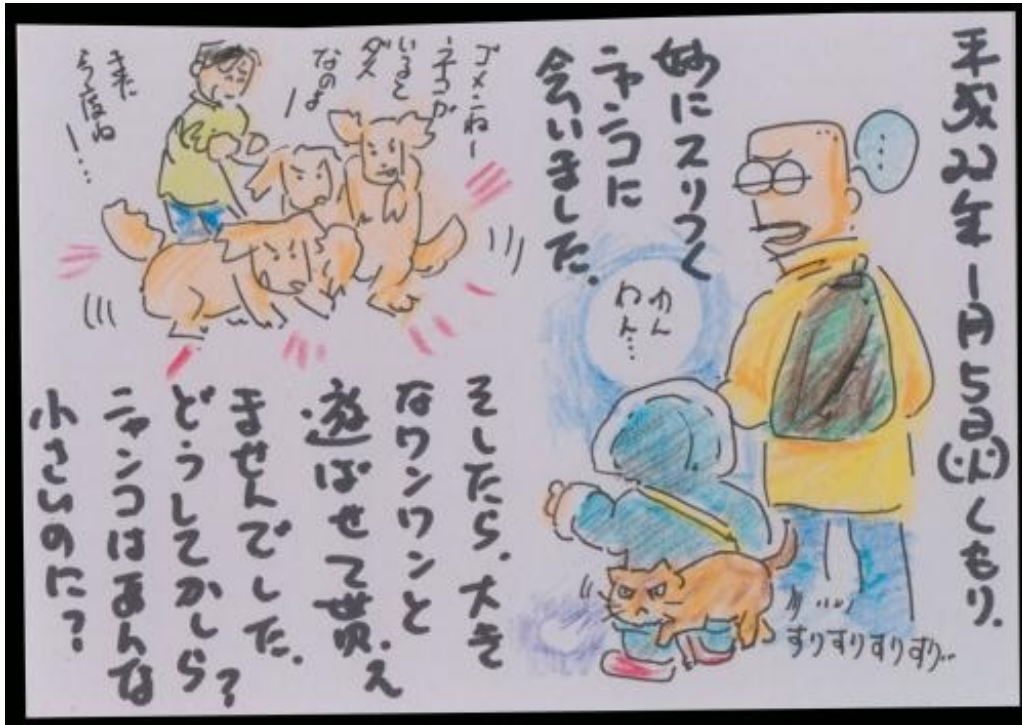 平成22年1月5日(火)くもり.
妙にスリつく
ニャンコに
会いました.
わん
わん…
すりすりすりすり..
ゴメンねー
ネコが
いると
ダメ
なのよ
ー
また
今度ね
ー…
そしたら.大き
なワンワンと
遊ばせて貰え
ませんでした.
どうしてかしら?
ニャンコはあんな
小さいのに?